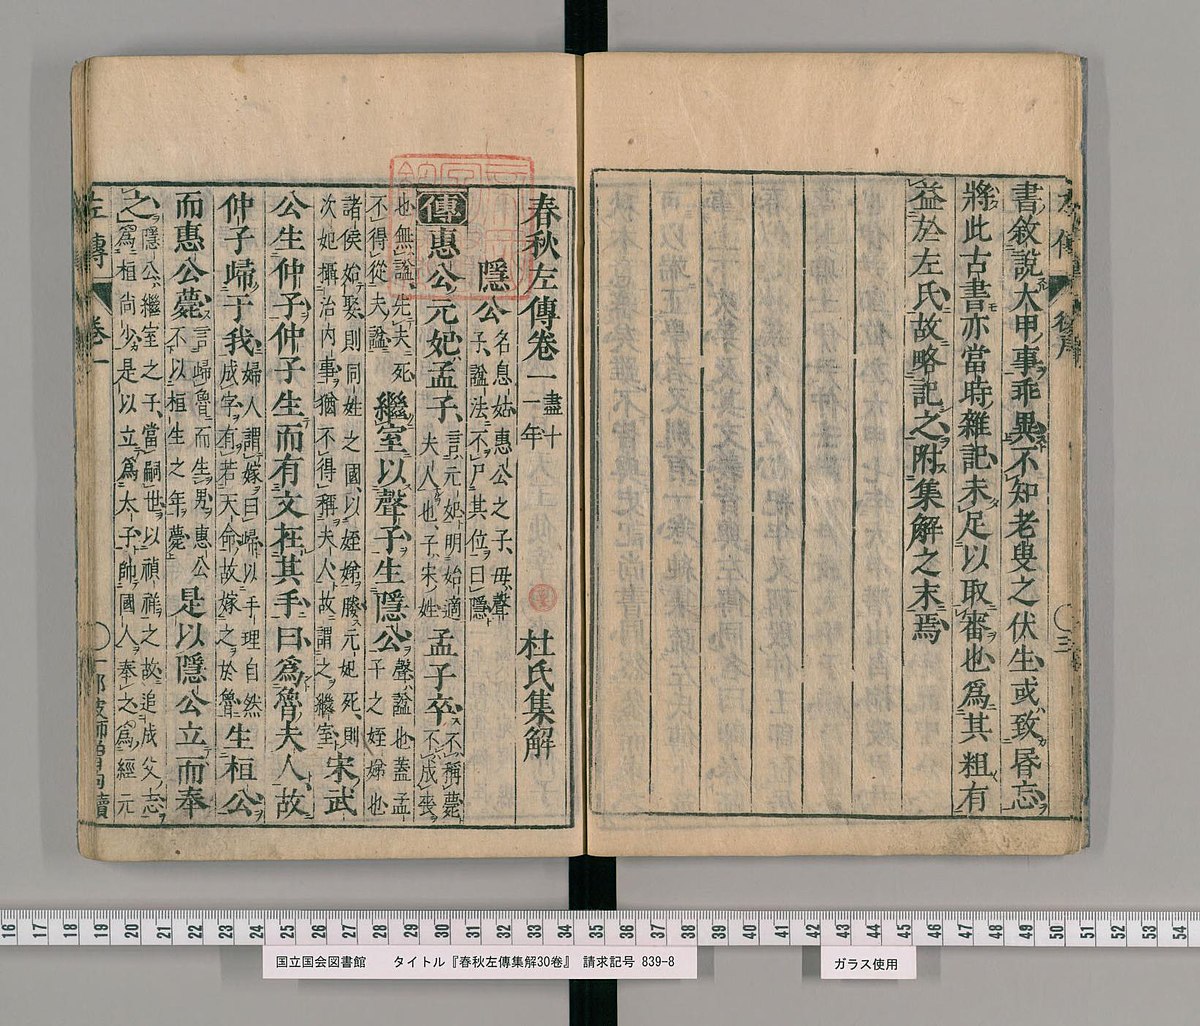 書敘說大甲事乖異不知老叟之伏生或致昬忘
將此古書亦當時雜記未足以取審也爲其粗有
益於左氏故略記之附集解之末焉
春秋左傳卷一 盡十一年 杜氏集解
隱公 名息姑惠公之子母聲子謚法不尸其位曰隱
傳惠公元妃孟子 言元妃明始適夫人也子宋姓 孟子卒 不稱薨不成喪
也無謚先夫死不得從夫謚 繼室以聲子生隱公 聲謚也蓋孟子之姪娣也
諸侯始娶則同姓之國以姪娣媵元妃死則次妃攝治内事猶不得稱夫人故謂之繼室 宋武
公生仲子仲子生而有文在其手曰爲魯夫人故
仲子歸于我 婦人謂嫁曰歸以手理自然成字有若天命故嫁之於魯 生桓公
而惠公薨 言歸魯而生男惠公不以桓生之年薨 是以隱公立而奉
之 隱公繼室之子當嗣世以禎祥之故追成父志爲桓尚少是以立爲太子帥國人奉之爲經元
左傳 卷一 〇一 那波師曾句讀
16 17 18 19 20 21 22 23 24 25 26 27 28 29 30 31 32 33 34 35 36 37 38 39 40 41 42 43 44 45 46 47 48 49 50 51 52 53 54
国立国会図書館 タイトル『春秋左傳集解30巻』 請求記号 839-8
ガラス使用